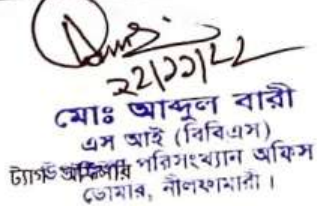 ২২/১১/২২
মোঃ আব্দুল বারী
এস আই (বিবিএস)
ট্যাগড অফিসার পরিসংখ্যান অফিস
ডোমার, নীলফামারী।